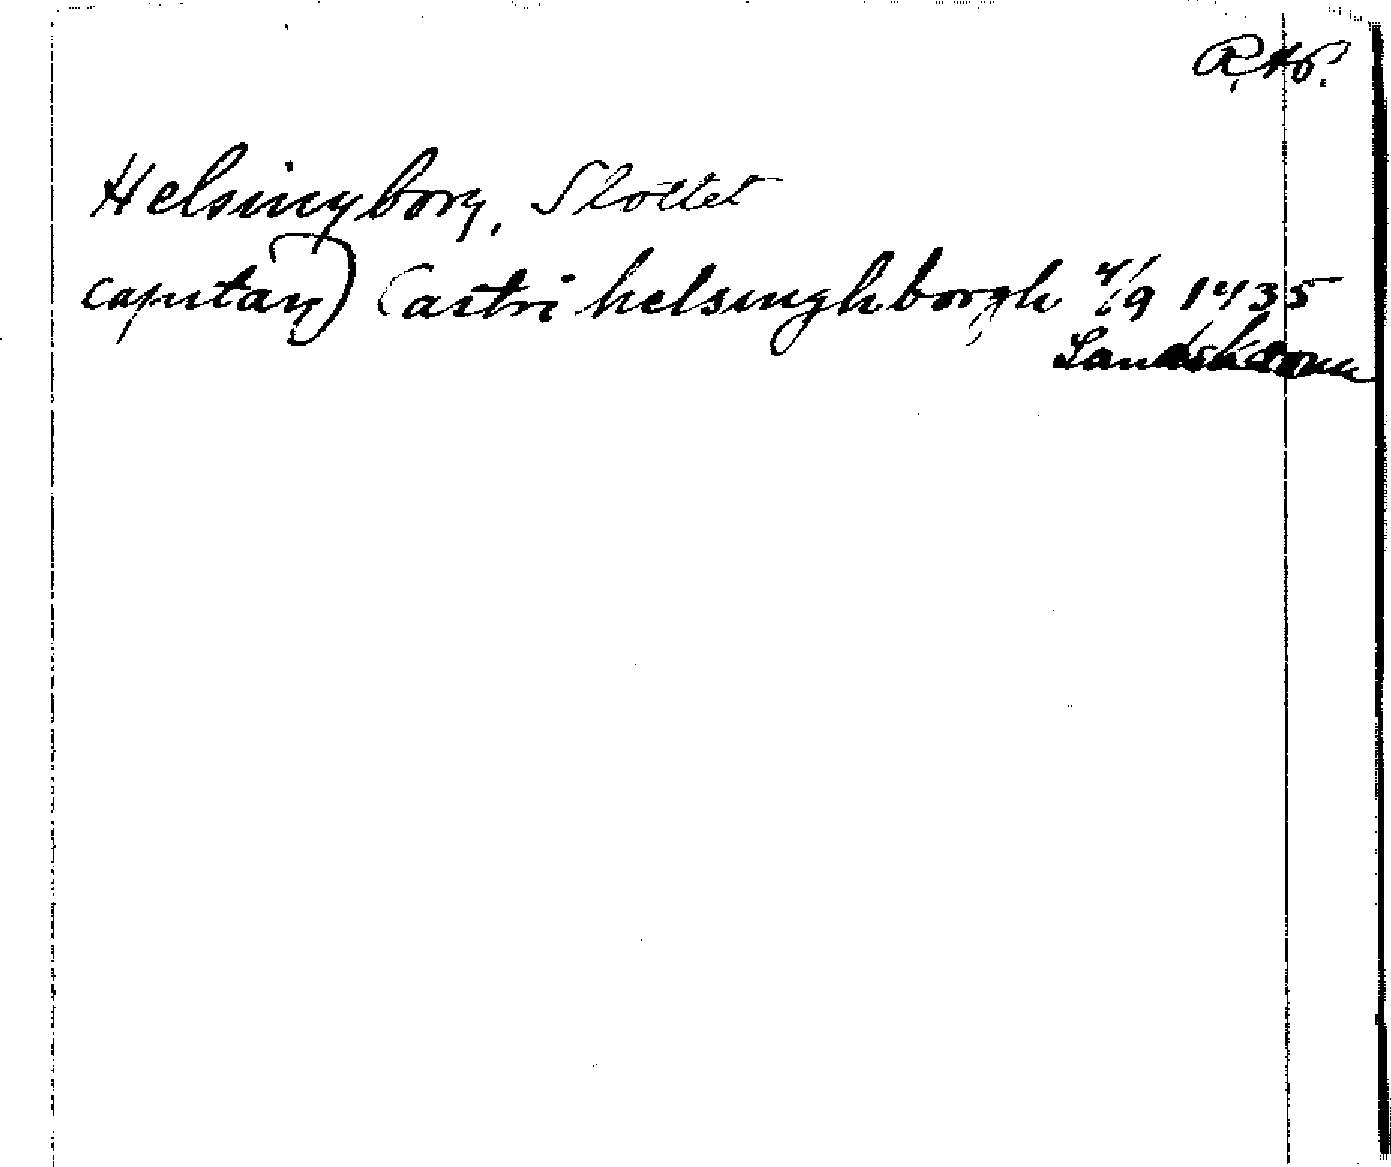 R.Ap.
Helsingborg, Slottet
capitan) Castri helsinghborgh 4/9 1435
Landskrona